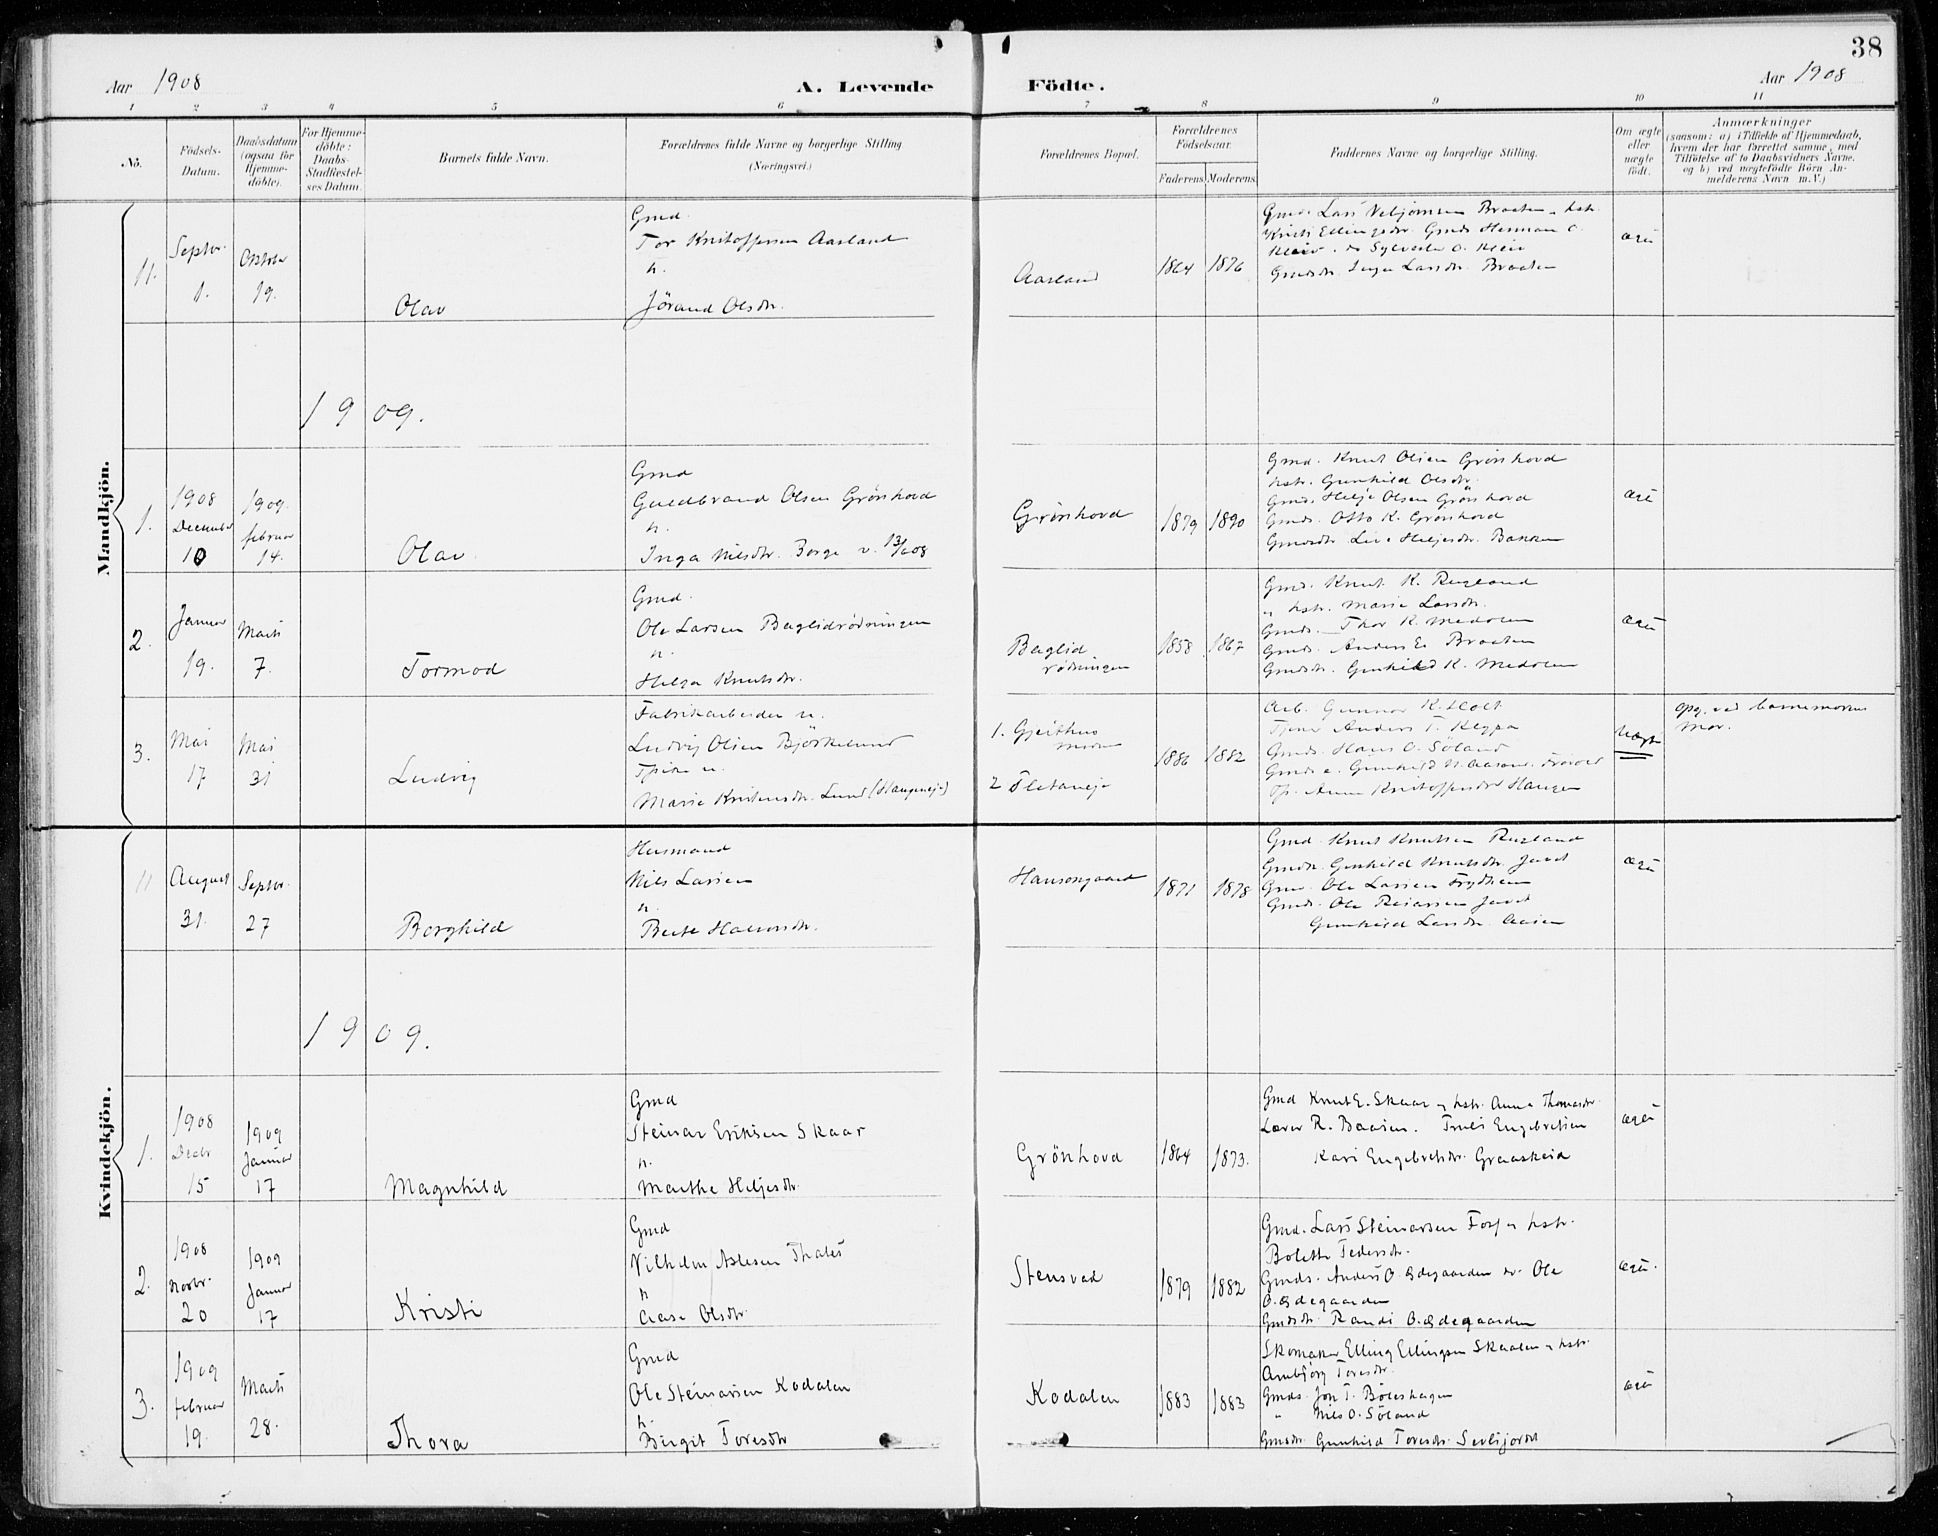 38
Aar 1908
A. Levende Födte.
Aar 1908
1 2 3 4 5 6 7 8 9 10 11
No.
Födsels-Datum.
Daabsdatum (ogsaa for Hjemme-döbte).
For Hjemme-döbte: Daabs-Stadfæstel-ses Datum.
Barnets fulde Navn.
Forældrenes fulde Navne og borgerlige Stilling (Næringsvei.)
Forældrenes Bopæl.
Forældrenes Födselsaar.
Faderens. Moderens.
Faddernes Navne og borgerlige Stilling.
Om ægte eller uægte födt.
Anmærkninger
(saasom: a) i Tilfælde af Hjemmedaab,
hvem der har forrettet samme, med
Tilföielse af to Daabsvidners Navne.
og b) ved uægtefödte Börn An-
melderens Navn m.V.)
Mandkjön.
11.
Septbr. 1.
Oktober 19.
Olav
Gmd.
Tor Kristoffersen Aasland
h.
Jörand Olsdtr.
Aasland
1864 1876
Gmd. Lars Vebjörnsen Braaten hstr.
Kristi Ellingsdtr. Gmds Herman O.
Kleiv Sylvester O. Kleiv
Gmdsdtr. Inga Larsdtr. Braaten
ægte
1909.
1.
1908 December 10
1909. februar 14.
Olav
Gmd
Guldbrand Olsen Grönhovd
h.
Inga Nilsdtr. Borge v. 13/6 08
Grönhovd
1879 1890
Gmd. Knut Olsen Grönhovd
hstr. Gunhild Olsdtr.
Gmds Helje Olsen Grönhovd
Gmds. Otto K. Grönhovd
Gmdsdtr Live Heljesdtr. Bakken
ægte
2.
Januar 19.
Marts 7.
Tormod
Gmd.
Ole Larsen Baglidrödningen
h.
Helga Knutsdtr.
Baglid
rödningen
1858 1867
Gmd. Knut K. Rugland
" hstr. Marie Larsdtr.
Gmds. Thor K. Medalen
Gmds. Anders E. Braaten
Gmdsdtr. Gunhild K. Medalen
ægte
3.
Mai 17
Mai 31
Ludvig
Fabrikarbeider u.
Ludvig Olsen Björkelund
Tpike u.
Marie Kristensdtr. Lund (Haugeneje)
1. Gjeithus
Modum
2 Fletaneje
1886 1882
Arb. Gunnar K. Holt
Tjener Anders T. Klyppa
Gmds. Hans O. Söland
Tp. Anne Kristoffersdtr Haugen
Uægte
opg. ved barnemorens
Mor.
Kvindekjön.
11
August 31.
Septbr. 27
Borghild
Husmand
Nils Larsen
h.
Berte Halvorsdtr.
Hansengaard
1871 1878
Gmd. Knut Knutsen Rugland
Gmdsdtr. Gunhild Knutsdtr. Juvet
Gmd. Ole Larsen Frydheim
Gmds. Ole Reiarsen Juvet
Gunhild Larsdtr. Aasen
ægte
1909.
1.
1908 Decbr 15
1909 Januar 17
Magnhild
Gmd
Steinar Eriksen Skaar
h.
Marthe Heljesdtr.
Grönhovd
1864 1873.
Gmd Knut E. Skaar og hstr. Anne Thomasdtr.
Lærer R. Baasen. Truls Engebretsen
Kari Engebretsdtr. Graaskeid
ægte
2.
1908 Novbr. 20
1909 Januar 17
Kristi
Gmd
Vilhelm Aslesen Thales
h
Aase Olsdtr.
Stensvad
1879 1882
Gmd. Lars Steinarsen Fosf og hstr.
Bolette Pedersdtr.
Gmds. Anders O. Ødegaarden Ole
O. Ødegaarden
Gmdsdtr. Randi O. Ødegaarden
ægte.
3.
1909 februar 19.
Marts 28.
Thora
Gmd
Ole Steinarsen Kodalen
h.
Birgit Toresdtr
Kodalen
1883 1883
Skomaker Elling Ellingsen Skaalen og hstr.
Ambjörg Toresdtr.
Gmds. Jon T. Böleshagen
" Nils O. Söland
Gmdsdtr. Gunhild Toresdtr. Sevlijordet
ægte